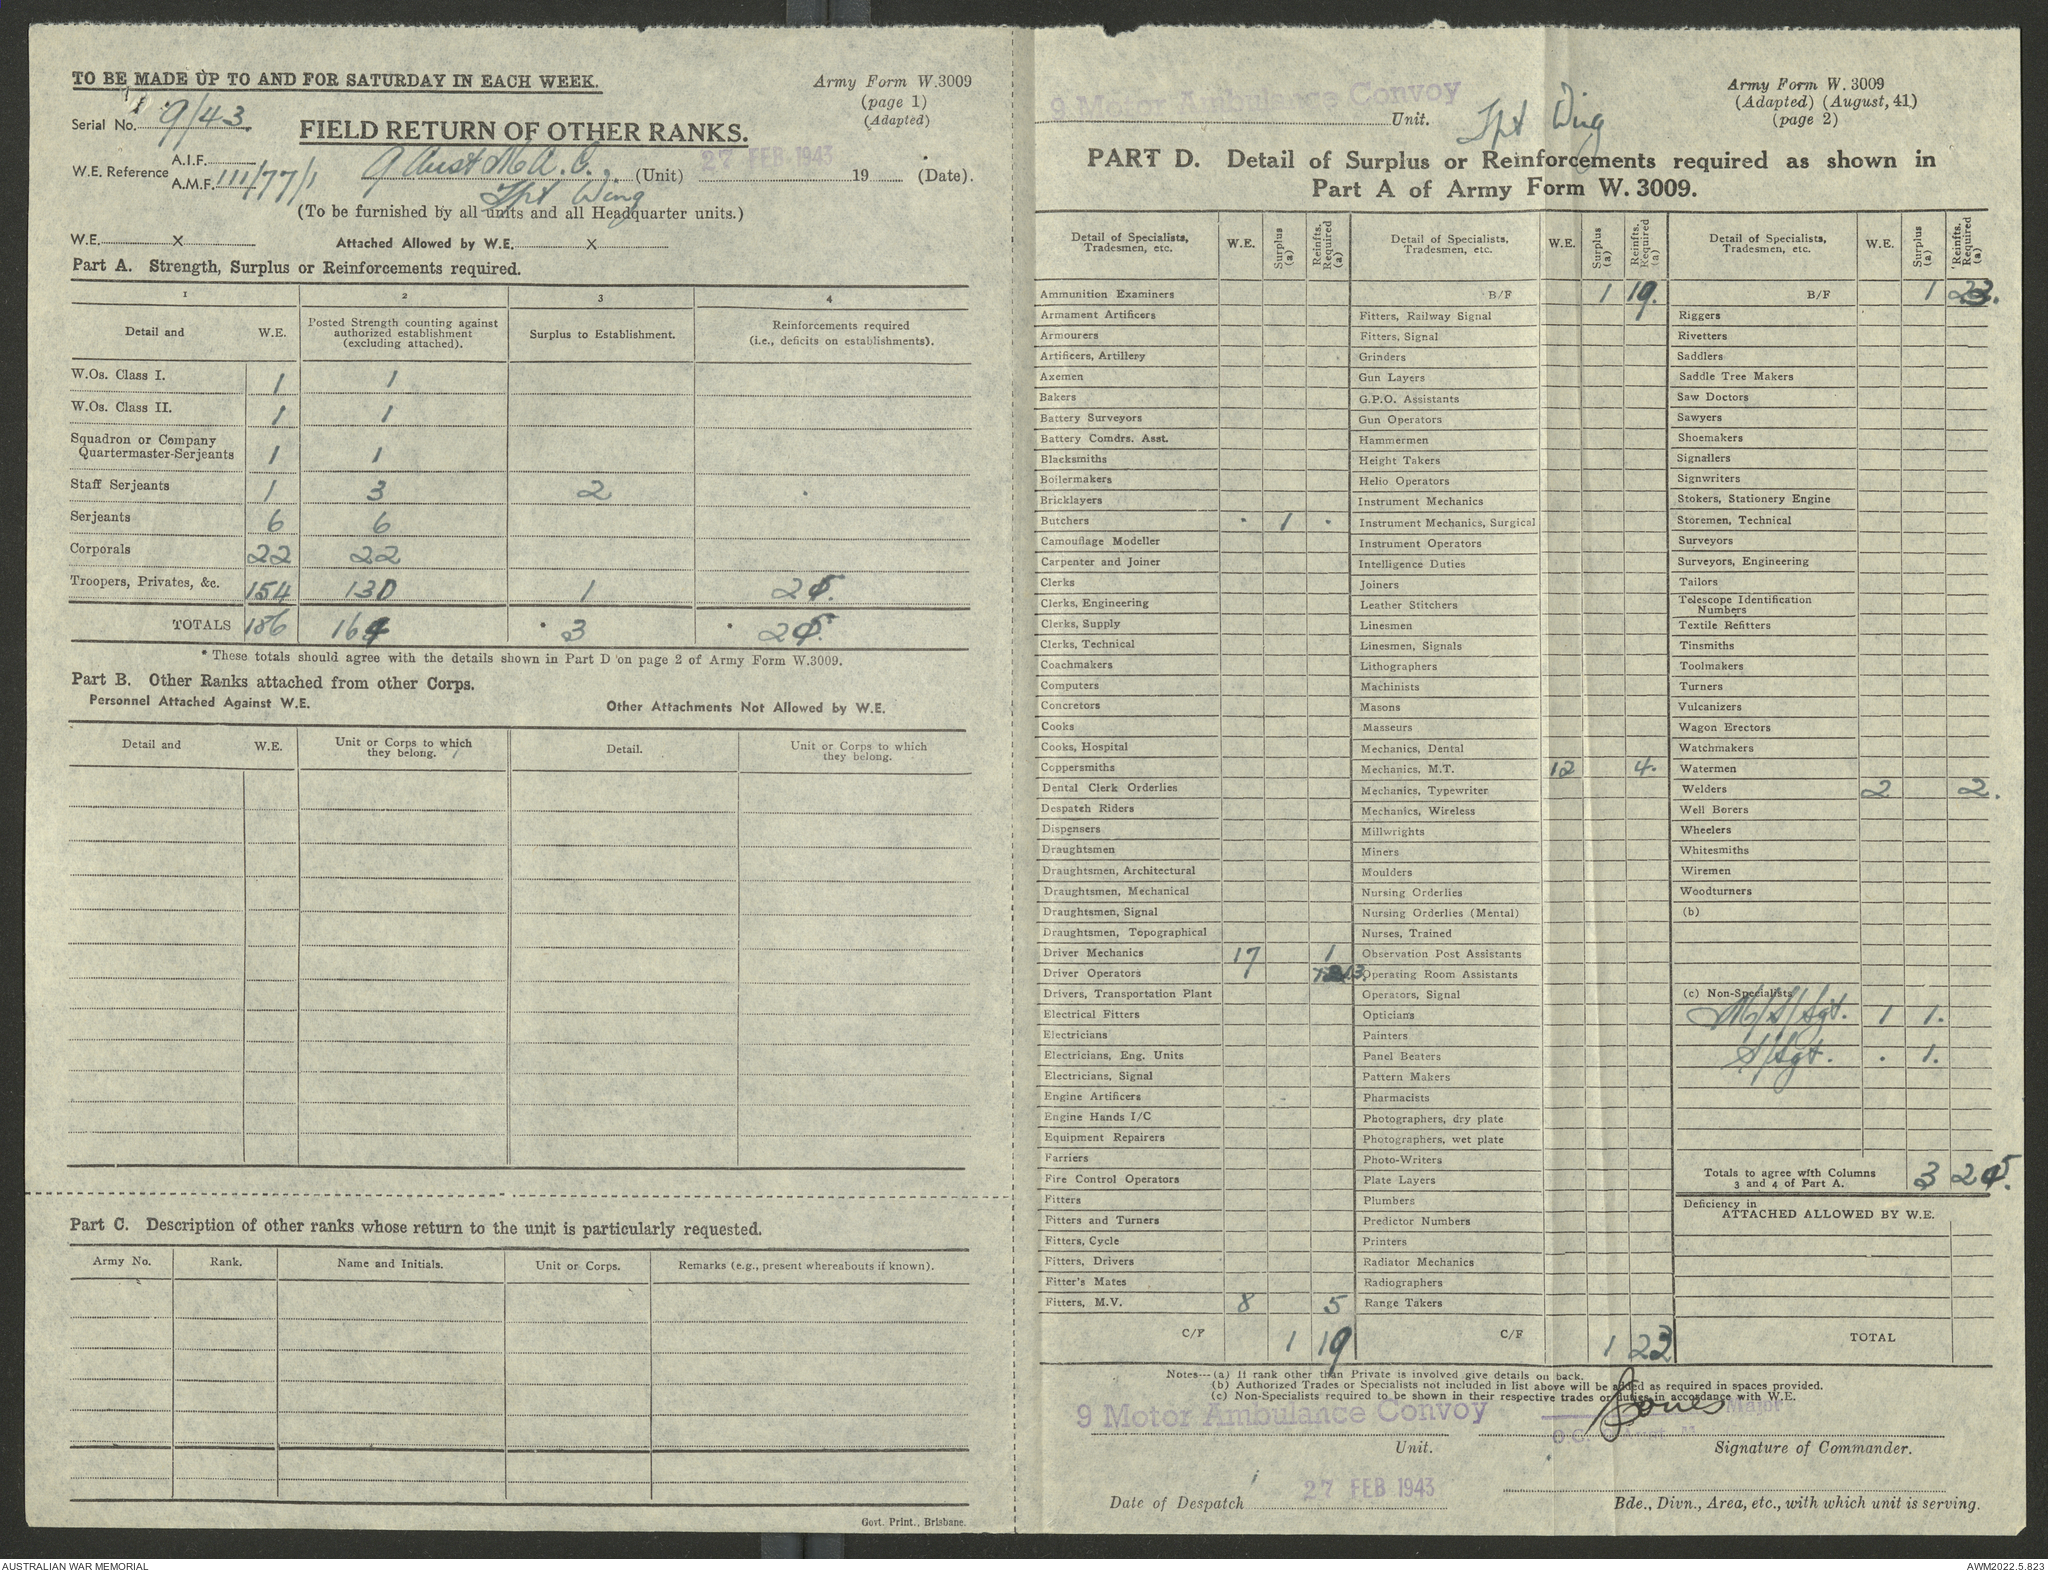 TO BE MADE UP TO AND FOR SATURDAY IN EACH WEEK.
Army Form W.3009
(page 1)
(Adapted)
Serial No. 9/43.
FIELD RETURN OF OTHER RANKS.
W.E. Reference A.I.F.
A.M.F. III/77/1
9 Aust M.A.C. (Unit) 27 FEB 1943 19 (Date).
Tpt Wing
(To be furnished by all units and all Headquarter units.)
W.E. X Attached Allowed by W.E. X
Part A. Strength, Surplus or Reinforcements required.
1 2 3 4
Detail and W.E. Posted Strength counting against authorized establishment (excluding attached). Surplus to Establishment. Reinforcements required (i.e., deficits on establishments).
W.Os. Class I. 1 1
W.Os. Class II. 1 1
Squadron or Company
Quartermaster-Serjeants 1 1
Staff Serjeants 1 3 2
Serjeants 6 6
Corporals 22 22
Troopers, Privates, &c. 154 130 1 25.
TOTALS 186 164 * 3 * 25.
* These totals should agree with the details shown in Part D on page 2 of Army Form W.3009.
Part B. Other Ranks attached from other Corps.
Personnel Attached Against W.E. Other Attachments Not Allowed by W.E.
Detail and W.E. Unit or Corps to which they belong. Detail. Unit or Corps to which they belong.
Part C. Description of other ranks whose return to the unit is particularly requested.
Army No. Rank. Name and Initials. Unit or Corps. Remarks (e.g., present whereabouts if known).
Govt. Print., Brisbane.
9 Motor Ambulance Convoy Unit. Tpt Wing
Army Form W.3009
(Adapted) (August, 41)
(page 2)
PART D. Detail of Surplus or Reinforcements required as shown in
Part A of Army Form W.3009.
Detail of Specialists, Tradesmen, etc. W.E. Surplus (a) Reinfts. Required (a)
Ammunition Examiners
Armament Artificers
Armourers
Artificers, Artillery
Axemen
Bakers
Battery Surveyors
Battery Comdrs. Asst.
Blacksmiths
Boilermakers
Bricklayers
Butchers . 1 .
Camouflage Modeller
Carpenter and Joiner
Clerks
Clerks, Engineering
Clerks, Supply
Clerks, Technical
Coachmakers
Computers
Concretors
Cooks
Cooks, Hospital
Coppersmiths
Dental Clerk Orderlies
Despatch Riders
Dispensers
Draughtsmen
Draughtsmen, Architectural
Draughtsmen, Mechanical
Draughtsmen, Signal
Draughtsmen, Topographical
Driver Mechanics 17 1
Driver Operators 13.
Drivers, Transportation Plant
Electrical Fitters
Electricians
Electricians, Eng. Units
Electricians, Signal
Engine Artificers
Engine Hands I/C
Equipment Repairers
Farriers
Fire Control Operators
Fitters
Fitters and Turners
Fitters, Cycle
Fitters, Drivers
Fitter's Mates
Fitters, M.V. 8 5
C/F 1 19
Detail of Specialists, Tradesmen, etc. W.E. Surplus (a) Reinfts. Required (a)
B/F 1 19.
Fitters, Railway Signal
Fitters, Signal
Grinders
Gun Layers
G.P.O. Assistants
Gun Operators
Hammermen
Height Takers
Helio Operators
Instrument Mechanics
Instrument Mechanics, Surgical
Instrument Operators
Intelligence Duties
Joiners
Leather Stitchers
Linesmen
Linesmen, Signals
Lithographers
Machinists
Masons
Masseurs
Mechanics, Dental
Mechanics, M.T. 12 4.
Mechanics, Typewriter
Mechanics, Wireless
Millwrights
Miners
Moulders
Nursing Orderlies
Nursing Orderlies (Mental)
Nurses, Trained
Observation Post Assistants
Operating Room Assistants
Operators, Signal
Opticians
Painters
Panel Beaters
Pattern Makers
Pharmacists
Photographers, dry plate
Photographers, wet plate
Photo-Writers
Plate Layers
Plumbers
Predictor Numbers
Printers
Radiator Mechanics
Radiographers
Range Takers
C/F 1 23
Detail of Specialists, Tradesmen, etc. W.E. Surplus (a) Reinfts. Required (a)
B/F 1 23.
Riggers
Rivetters
Saddlers
Saddle Tree Makers
Saw Doctors
Sawyers
Shoemakers
Signallers
Signwriters
Stokers, Stationery Engine
Storemen, Technical
Surveyors
Surveyors, Engineering
Tailors
Telescope Identification Numbers
Textile Refitters
Tinsmiths
Toolmakers
Turners
Vulcanizers
Wagon Erectors
Watchmakers
Watermen
Welders 2 2.
Well Borers
Wheelers
Whitesmiths
Wiremen
Woodturners
(b)
(c) Non-Specialists
M/S/Sgt. 1 1.
S/Sgt. . 1.
Totals to agree with Columns
3 and 4 of Part A. 3 25.
Deficiency in
ATTACHED ALLOWED BY W.E.
TOTAL
Notes—(a) If rank other than Private is involved give details on back.
(b) Authorized Trades or Specialists not included in list above will be added as required in spaces provided.
(c) Non-Specialists required to be shown in their respective trades or duties in accordance with W.E.
9 Motor Ambulance Convoy Jones Major
O.C.
Unit. Signature of Commander.
Date of Despatch 27 FEB 1943
Bde., Divn., Area, etc., with which unit is serving.
AUSTRALIAN WAR MEMORIAL AWM2022.5.823